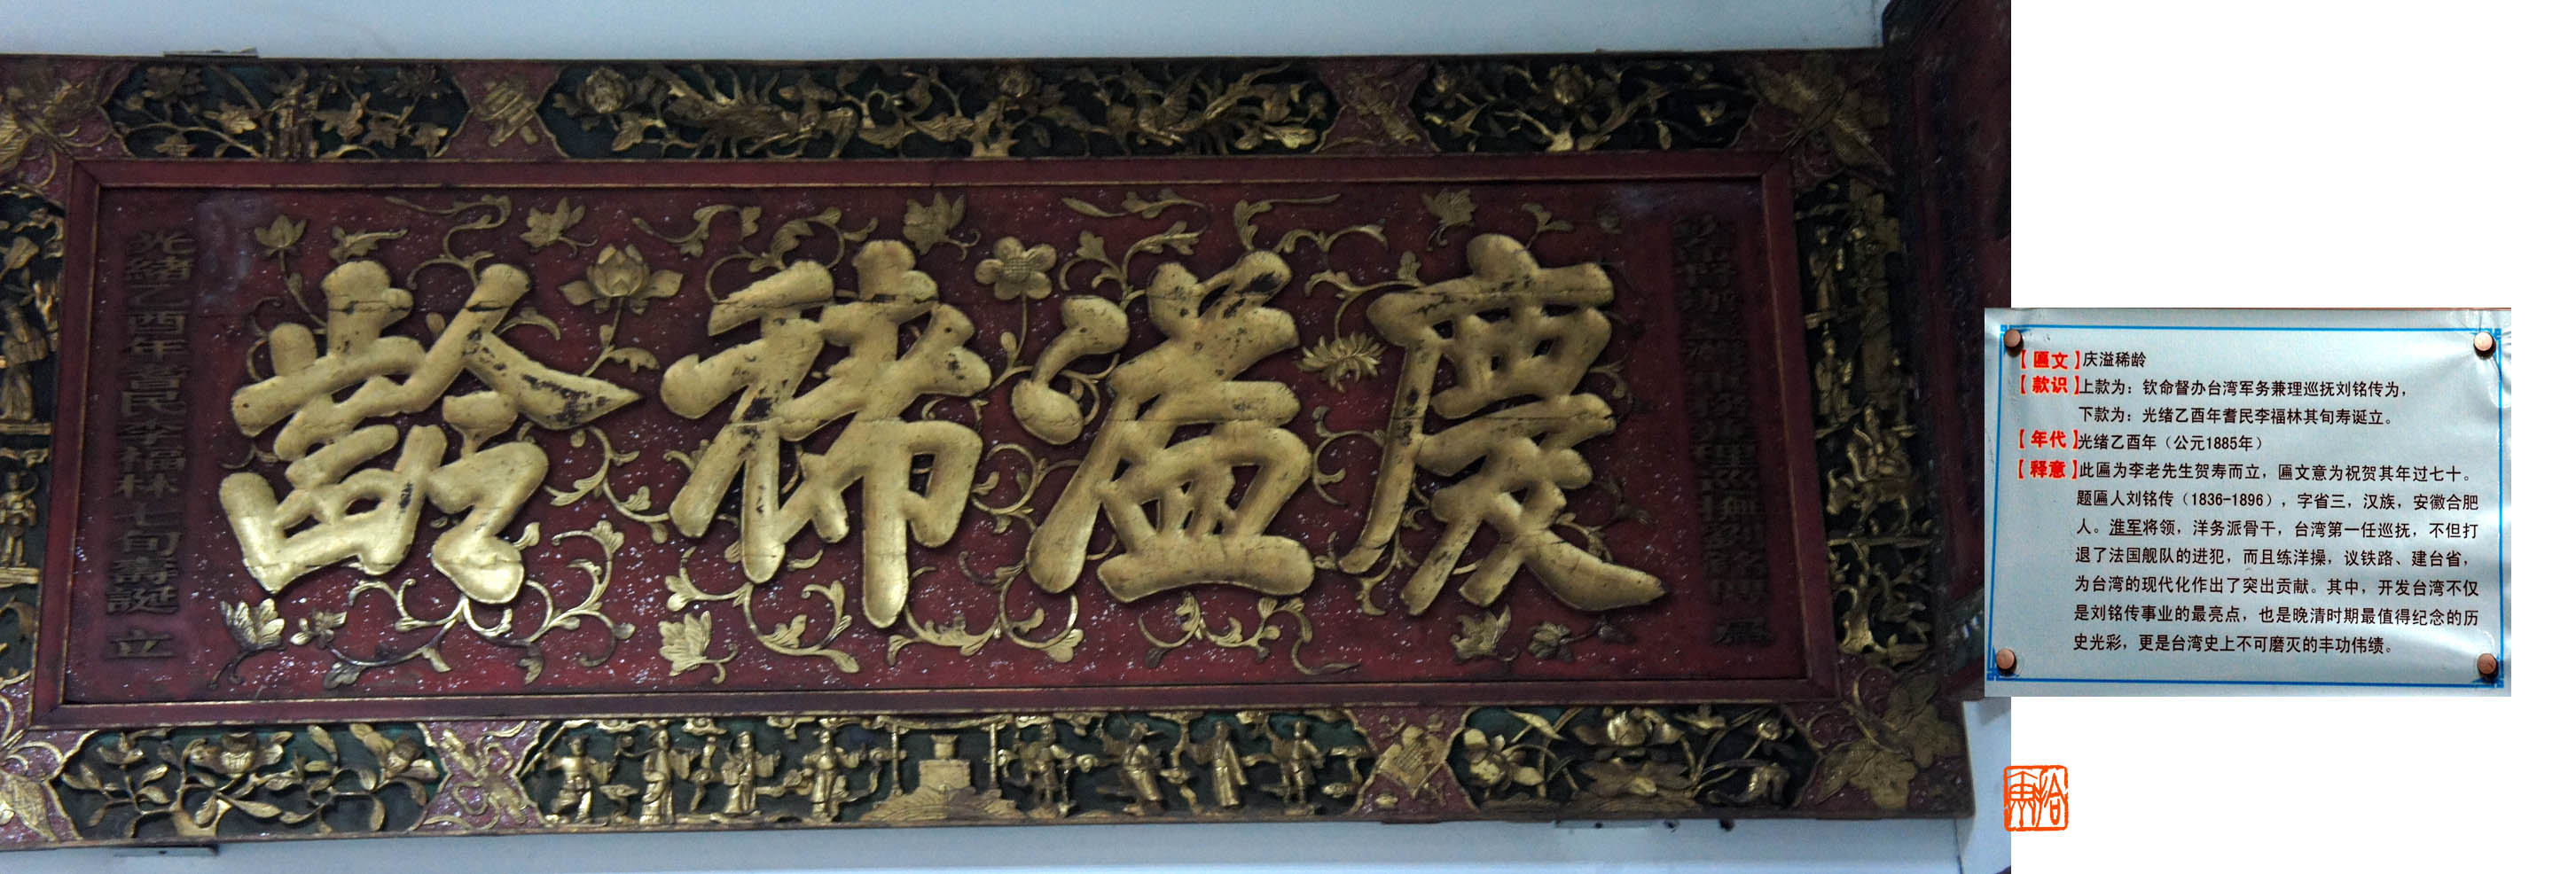 慶溢稀齡
光緒乙酉年耆民李福林七旬壽誕立
【匾文】庆溢稀龄
【款识】上款为：钦命督办台湾军务兼理巡抚刘铭传为，
下款为：光绪乙酉年耆民李福林其旬寿诞立。
【年代】光绪乙酉年（公元1885年）
【释意】此匾为李老先生贺寿而立，匾文意为祝贺其年过七十。
题匾人刘铭传（1836-1896），字省三，汉族，安徽合肥
人。淮军将领，洋务派骨干，台湾第一任巡抚，不但打
退了法国舰队的进犯，而且练洋操，议铁路、建台省，
为台湾的现代化作出了突出贡献。其中，开发台湾不仅
是刘铭传事业的最亮点，也是晚清时期最值得纪念的历
史光彩，更是台湾史上不可磨灭的丰功伟绩。